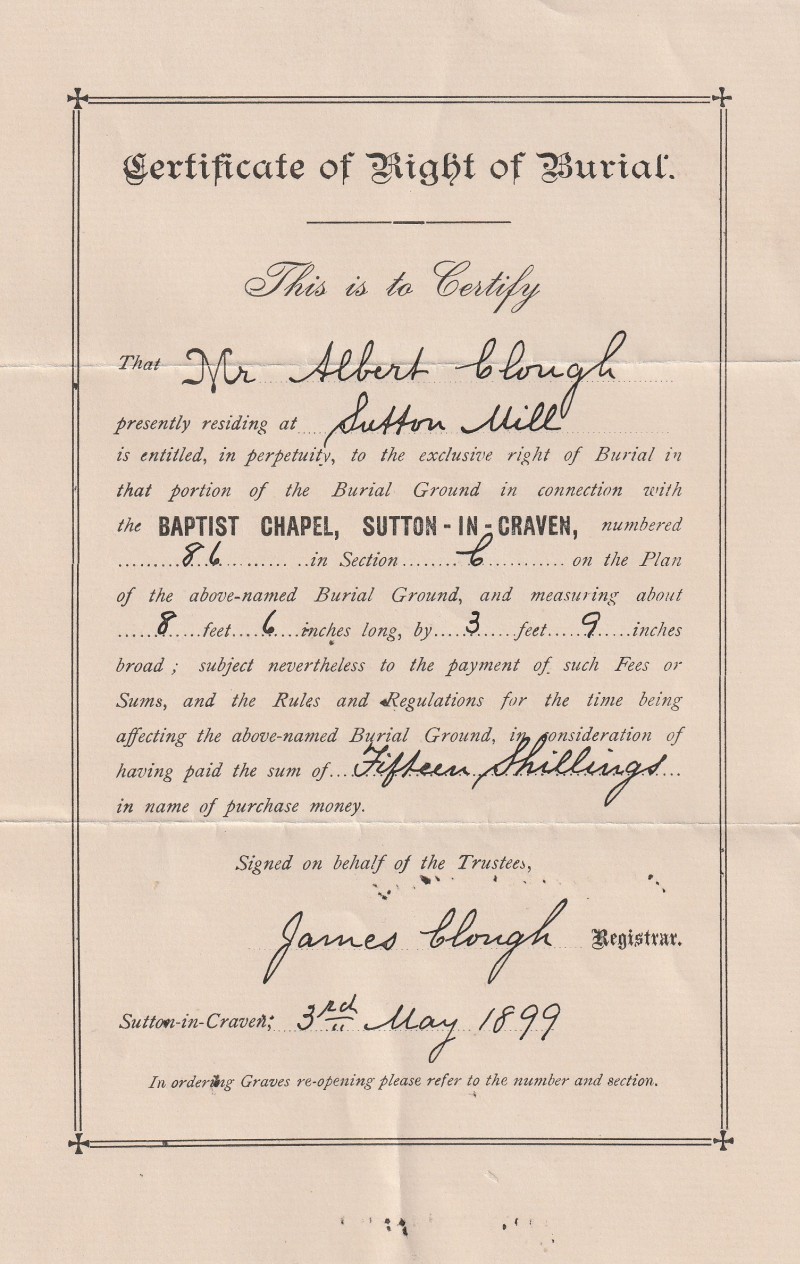 Certificate of Right of Burial.
This is to Certify
That Mr Albert Clough
presently residing at Sutton Mill
is entitled, in perpetuity, to the exclusive right of Burial in
that portion of the Burial Ground in connection with
the BAPTIST CHAPEL, SUTTON-IN-CRAVEN, numbered
86 in Section C on the Plan
of the above-named Burial Ground, and measuring about
8 feet 6 inches long, by 3 feet 9 inches
broad; subject nevertheless to the payment of such Fees or
Sums, and the Rules and Regulations for the time being
affecting the above-named Burial Ground, in consideration of
having paid the sum of Fifteen Shillings
in name of purchase money.
Signed on behalf of the Trustees,
James Clough Registrar.
Sutton-in-Craven, 3rd May 1899
In ordering Graves re-opening please refer to the number and section.